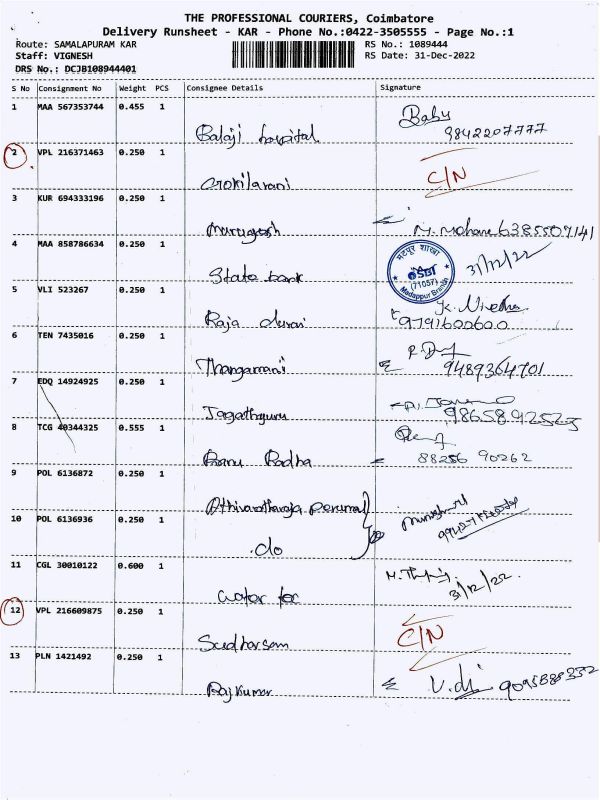 THE PROFESSIONAL COURIERS, Coimbatore
Delivery Runsheet - KAR - Phone No.:0422-3505555 - Page No.:1
Route: SAMALAPURAM KAR RS No.: 1089444
Staff: VIGNESH RS Date: 31-Dec-2022
DRS No.: DCJB108944401
S No Consignment No Weight PCS Consignee Details Signature
1 MAA 567353744 0.455 1 Balaji hospital Baby
9842207777
2 VPL 216371463 0.250 1 C/N
3 KUR 694333196 0.250 1 Murugesh M. Mohane 6385509141
4 MAA 858786634 0.250 1 State bank SBI (71057) 31/12/22
5 VLI 523267 0.250 1 Raja durai
9791600600
6 TEN 7435016 0.250 1 Thangamani
9489364701
7 EDQ 14924925 0.250 1 Jagathguru
8 TCG 40344325 0.555 1 Banu Radha
88256 90262
9 POL 6136872 0.250 1 Perumal
10 POL 6136936 0.250 1 do
11 CGL 30010122 0.600 1 water for 31/12/22.
12 VPL 216609875 0.250 1 Sudharsan C/N
13 PLN 1421492 0.250 1 Rajkumar